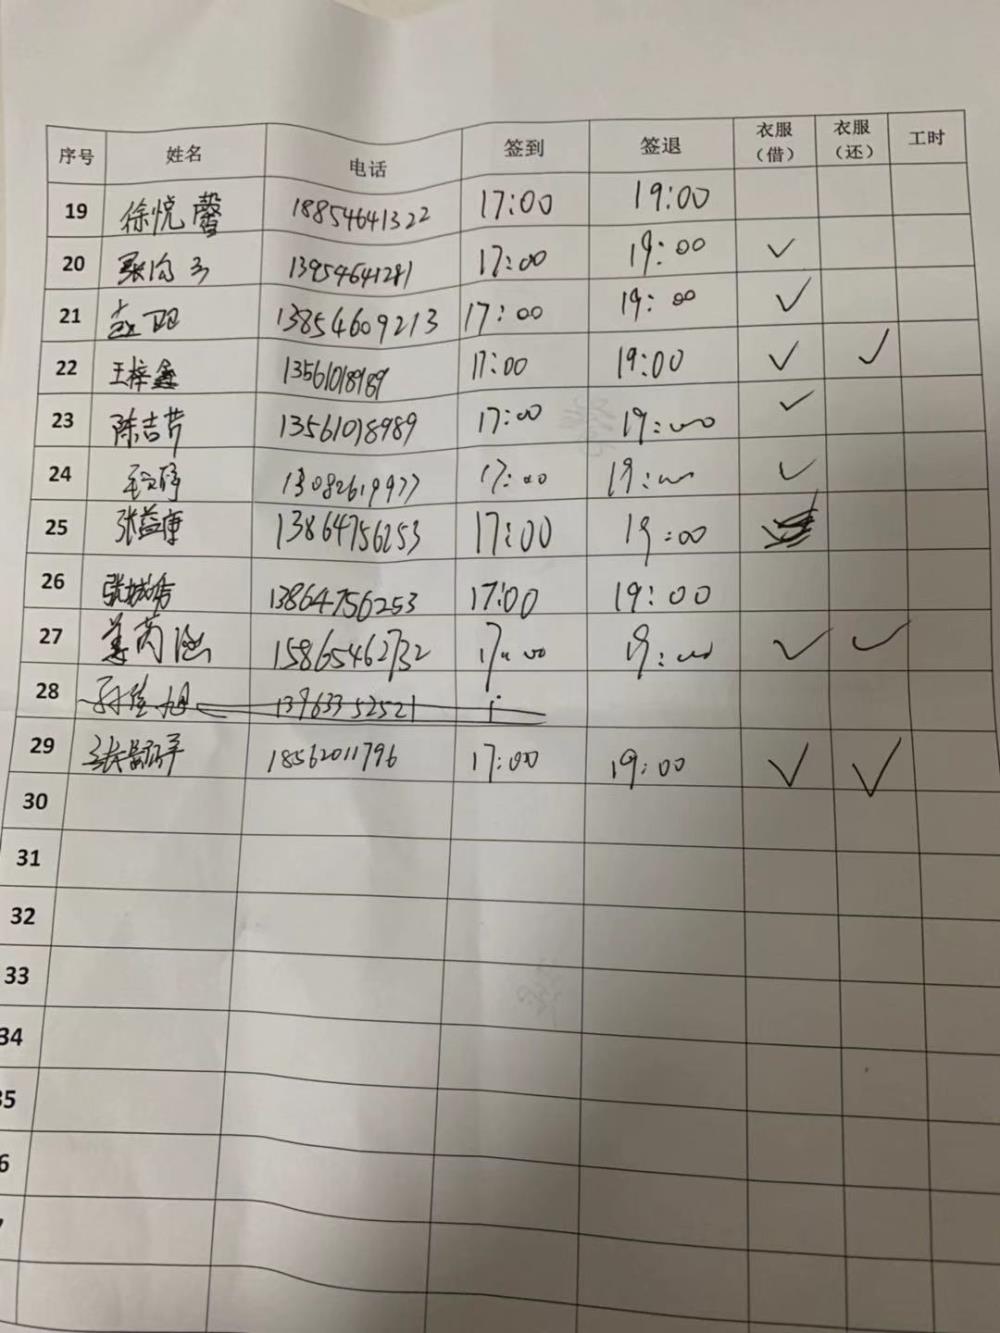 序号 姓名 电话 签到 签退 衣服（借） 衣服（还） 工时
19 徐悦馨 18854641322 17:00 19:00
20 13954641281 17:00 19:00 ✓
21 孟阳 13854609213 17:00 19:00 ✓
22 王梓鑫 13561018989 17:00 19:00 ✓ ✓
23 陈吉芹 13561018989 17:00 19:00 ✓
24 13082619977 17:00 19:00 ✓
25 张益康 13864756253 17:00 19:00
26 13864756253 17:00 19:00
27 姜芮涵 15865462732 17:00 19:00 ✓ ✓
28 孙佳旭 13963352521
29 18562011796 17:00 19:00 ✓ ✓
30
31
32
33
34
35